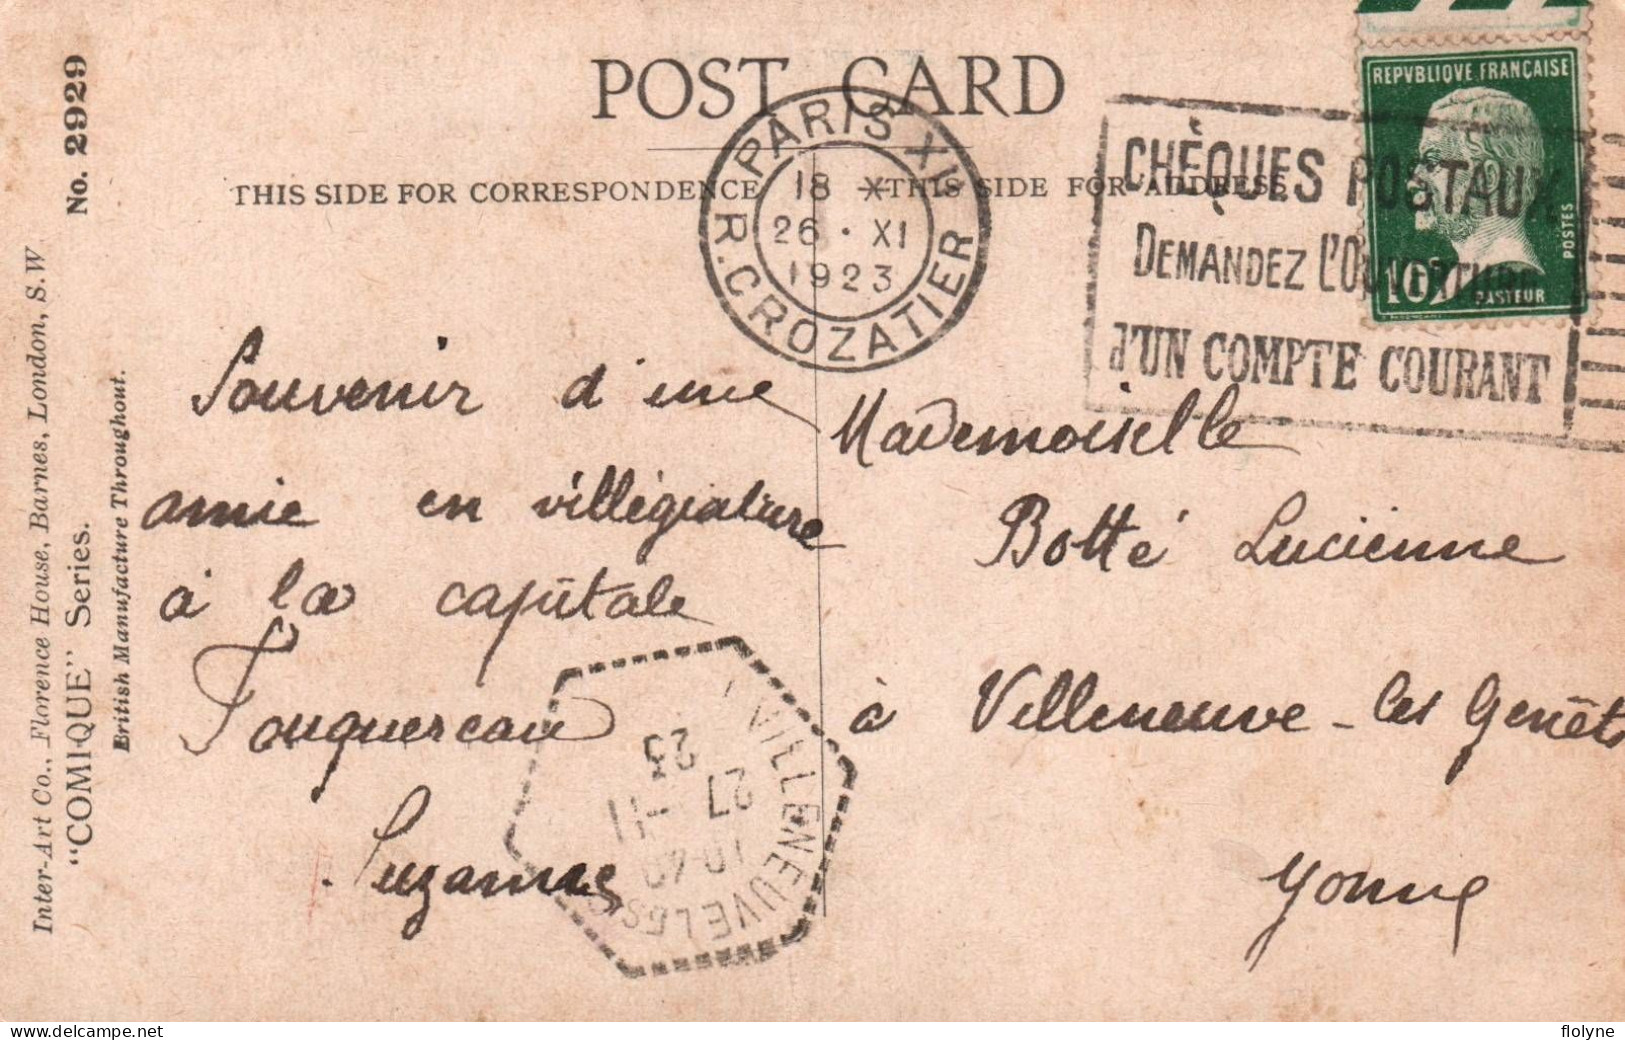 POST CARD
THIS SIDE FOR CORRESPONDENCE
THIS SIDE FOR ADDRESS
No. 2929
Inter-Art Co., Florence House, Barnes, London, S.W
"COMIQUE" Series.
British Manufacture Throughout.
PARIS XII
18 X
26 • XI
1923
R. CROZATIER
CHÈQUES POSTAUX
DEMANDEZ L'OUVERTURE
d'UN COMPTE COURANT
REPVBLIQVE FRANÇAISE
POSTES
10c
PASTEUR
Souvenir d'une
amie en villégiature
à la capitale
Fouquereau
Suzanne
Mademoiselle
Botté Lucienne
à Villeneuve-les Genêts
Yonne
VILLENEUVE LES
27 - 11
23
flolyne